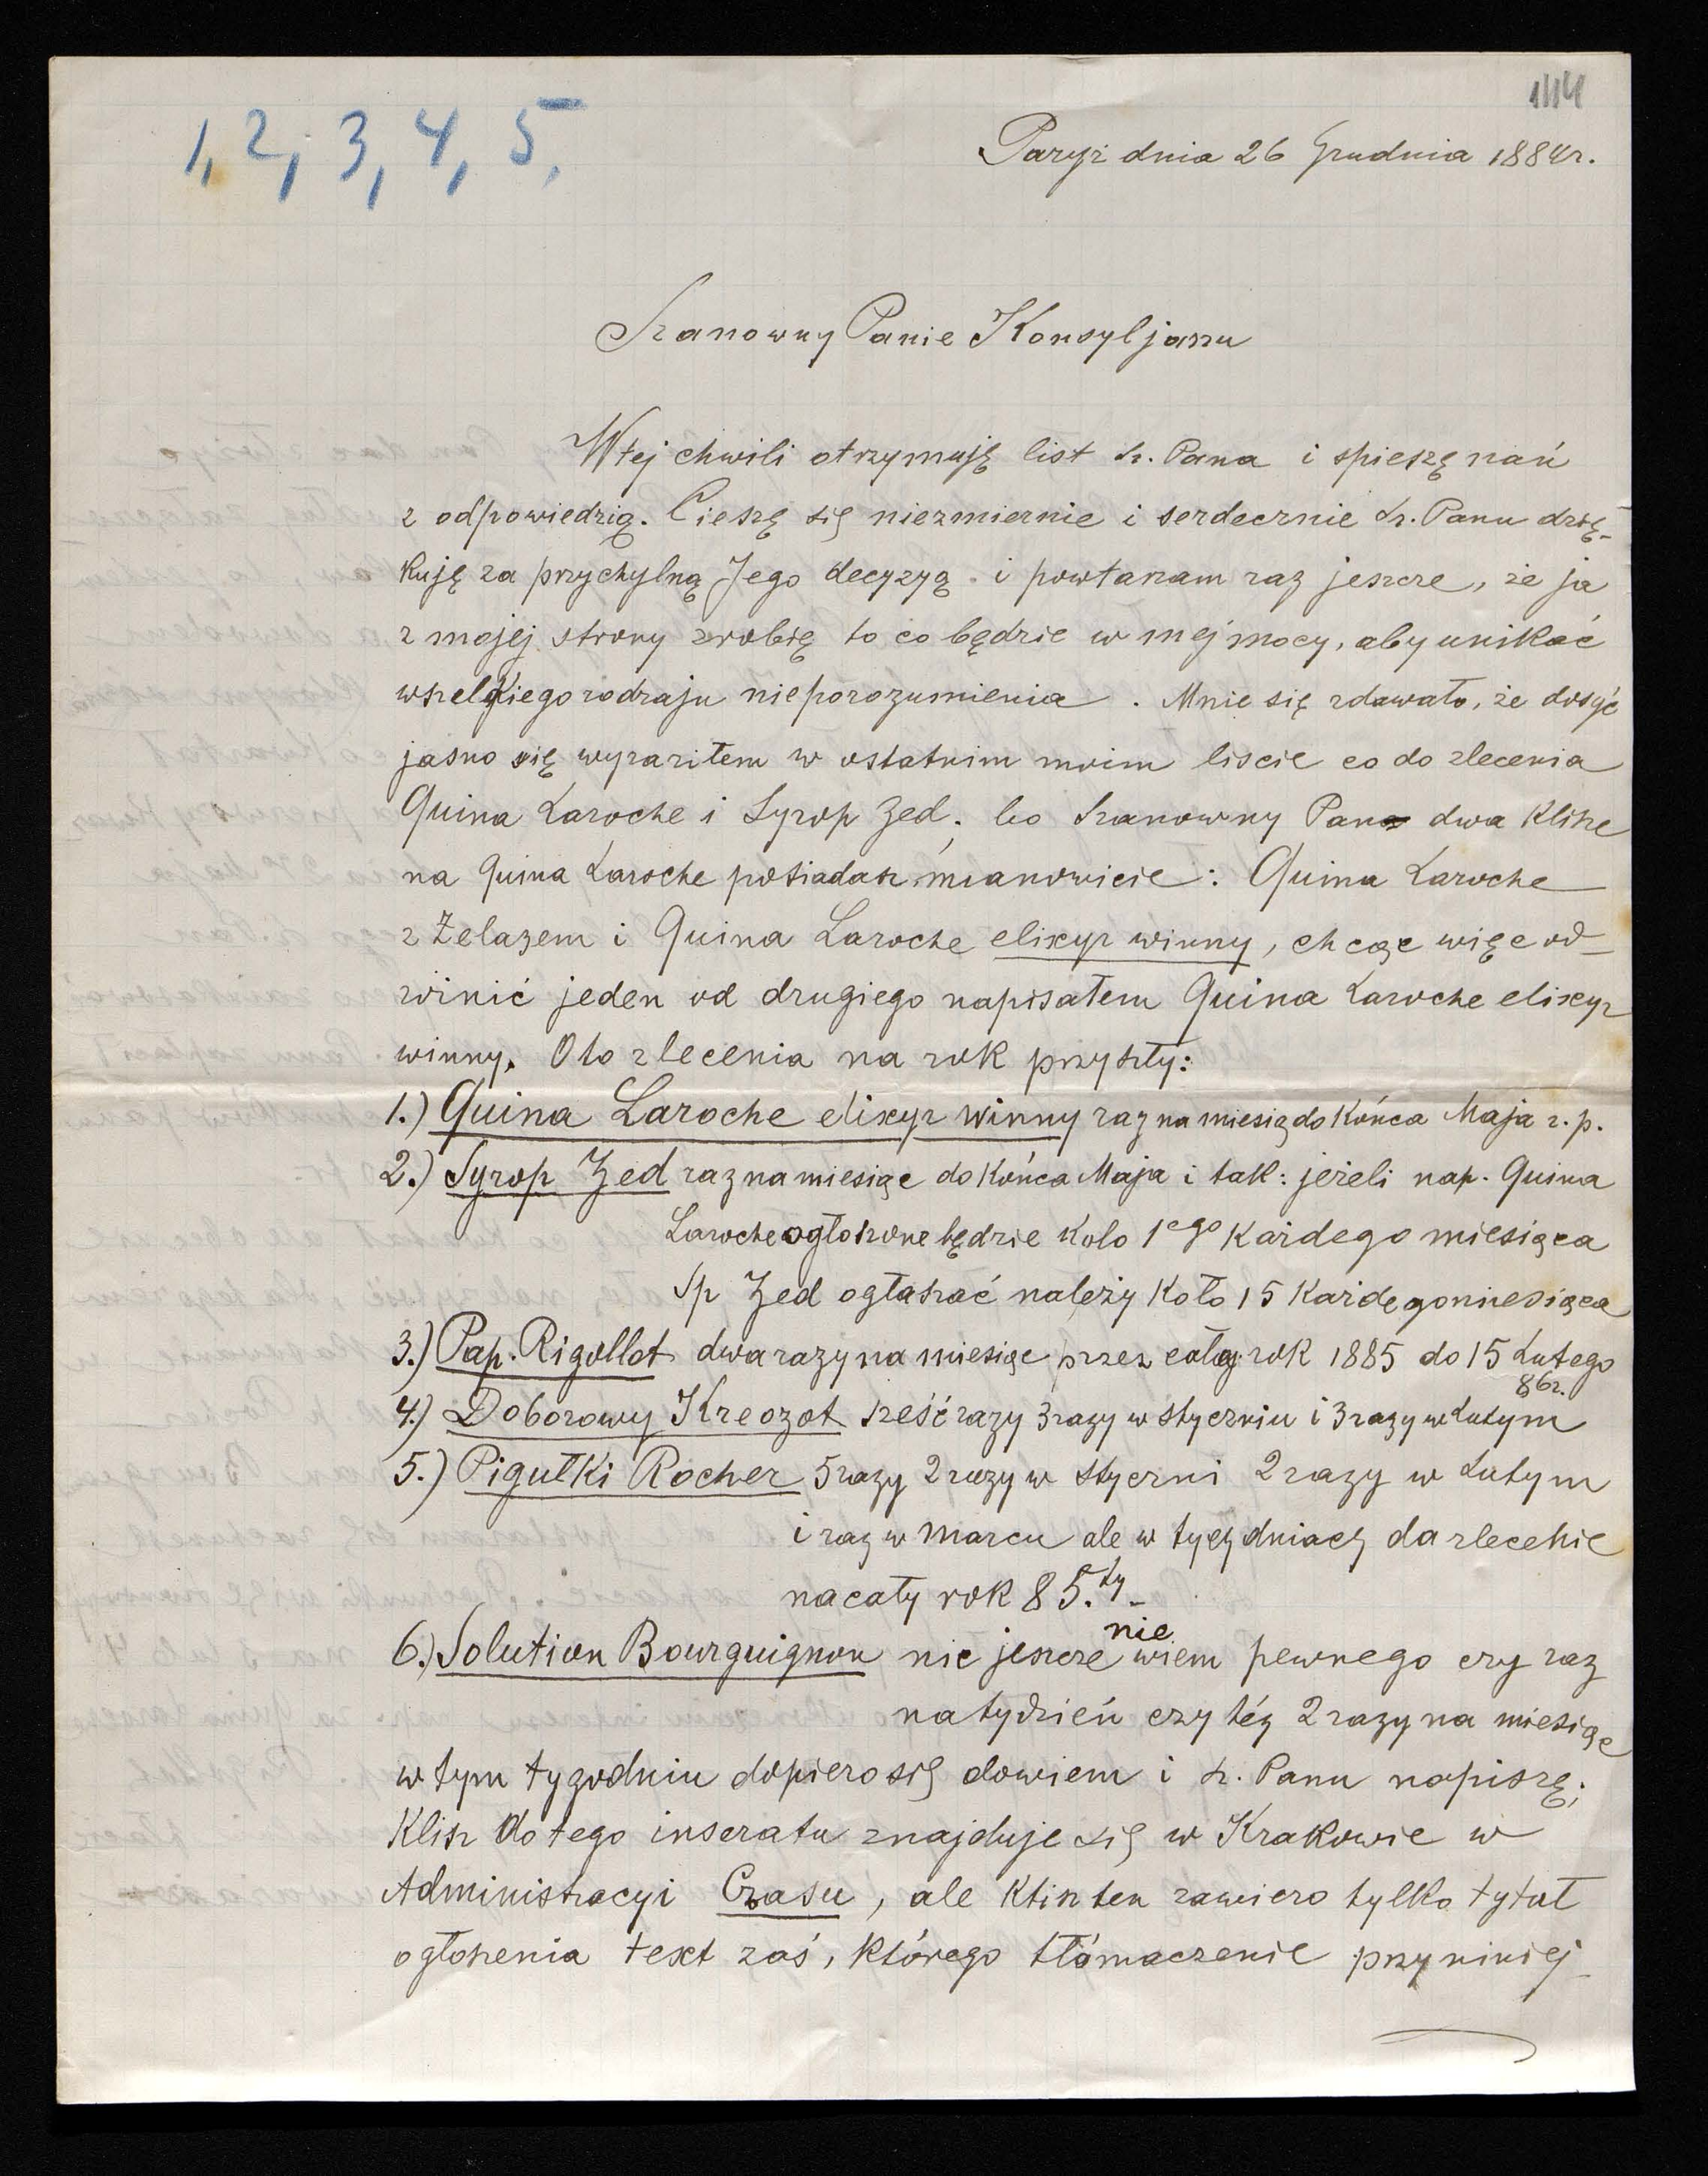 1, 2, 3, 4, 5,
Paryż dnia 26 Grudnia 1884r.
Szanowny Panie Konsyljarzu
W tej chwili otrzymuję list Sz. Pana i spieszę nań
z odpowiedzią. Cieszę się niezmiernie i serdecznie Sz. Panu dzię-
kuję za przychylną Jego decyzyą i powtarzam raz jeszcze, że ja
z mojej strony zrobię to co będzie w mej mocy, aby unikać
wszelkiego rodzaju nieporozumienia. Mnie się zdawało, że dosyć
jasno się wyraziłem w ostatnim moim liscie co do zlecenia
Quina Laroche i Syrop Zed. bo Szanowny Pan dwa klisze
na Quina Laroche posiadasz, mianowicie: Quina Laroche
z Żelazem i Quina Laroche elixyr winny, chcąc więc od-
różnić jeden od drugiego napisałem Quina Laroche elixyr
winny. Oto zlecenia na rok przyszły:
1.) Quina Laroche elixyr winny raz na miesiąc do końca Maja r. p.
2.) Syrop Zed raz na miesiąc do końca Maja i tak: jeżeli nap. Quina
Laroche ogłoszone będzie koło 1ego każdego miesiąca
Sp Zed ogłaszać należy koło 15 każdego miesiąca
3.) Pap. Rigollot dwa razy na miesiąc przez cały rok 1885 do 15 Lutego
86r.
4.) Doborowy Kreozot sześć razy 3 razy w styczniu i 3 razy w Lutym
5.) Pigułki Rocher 5 razy 2 razy w styczni 2 razy w Lutym
i raz w Marcu ale w tych dniach da zlecenie
na cały rok 85.ty-
6.) Solution Bourguignon nic jeszcze nie wiem pewnego czy raz
na tydzień czy też 2 razy na miesiąc
w tym tygodniu dopiero się dowiem i Sz. Panu napiszę;
Klisz do tego inseratu znajduje się w Krakowie w
Administracyi Czasu, ale klisz ten zawiera tylko tytuł
ogłoszenia text zaś, którego tłómaczenie przy niniej-